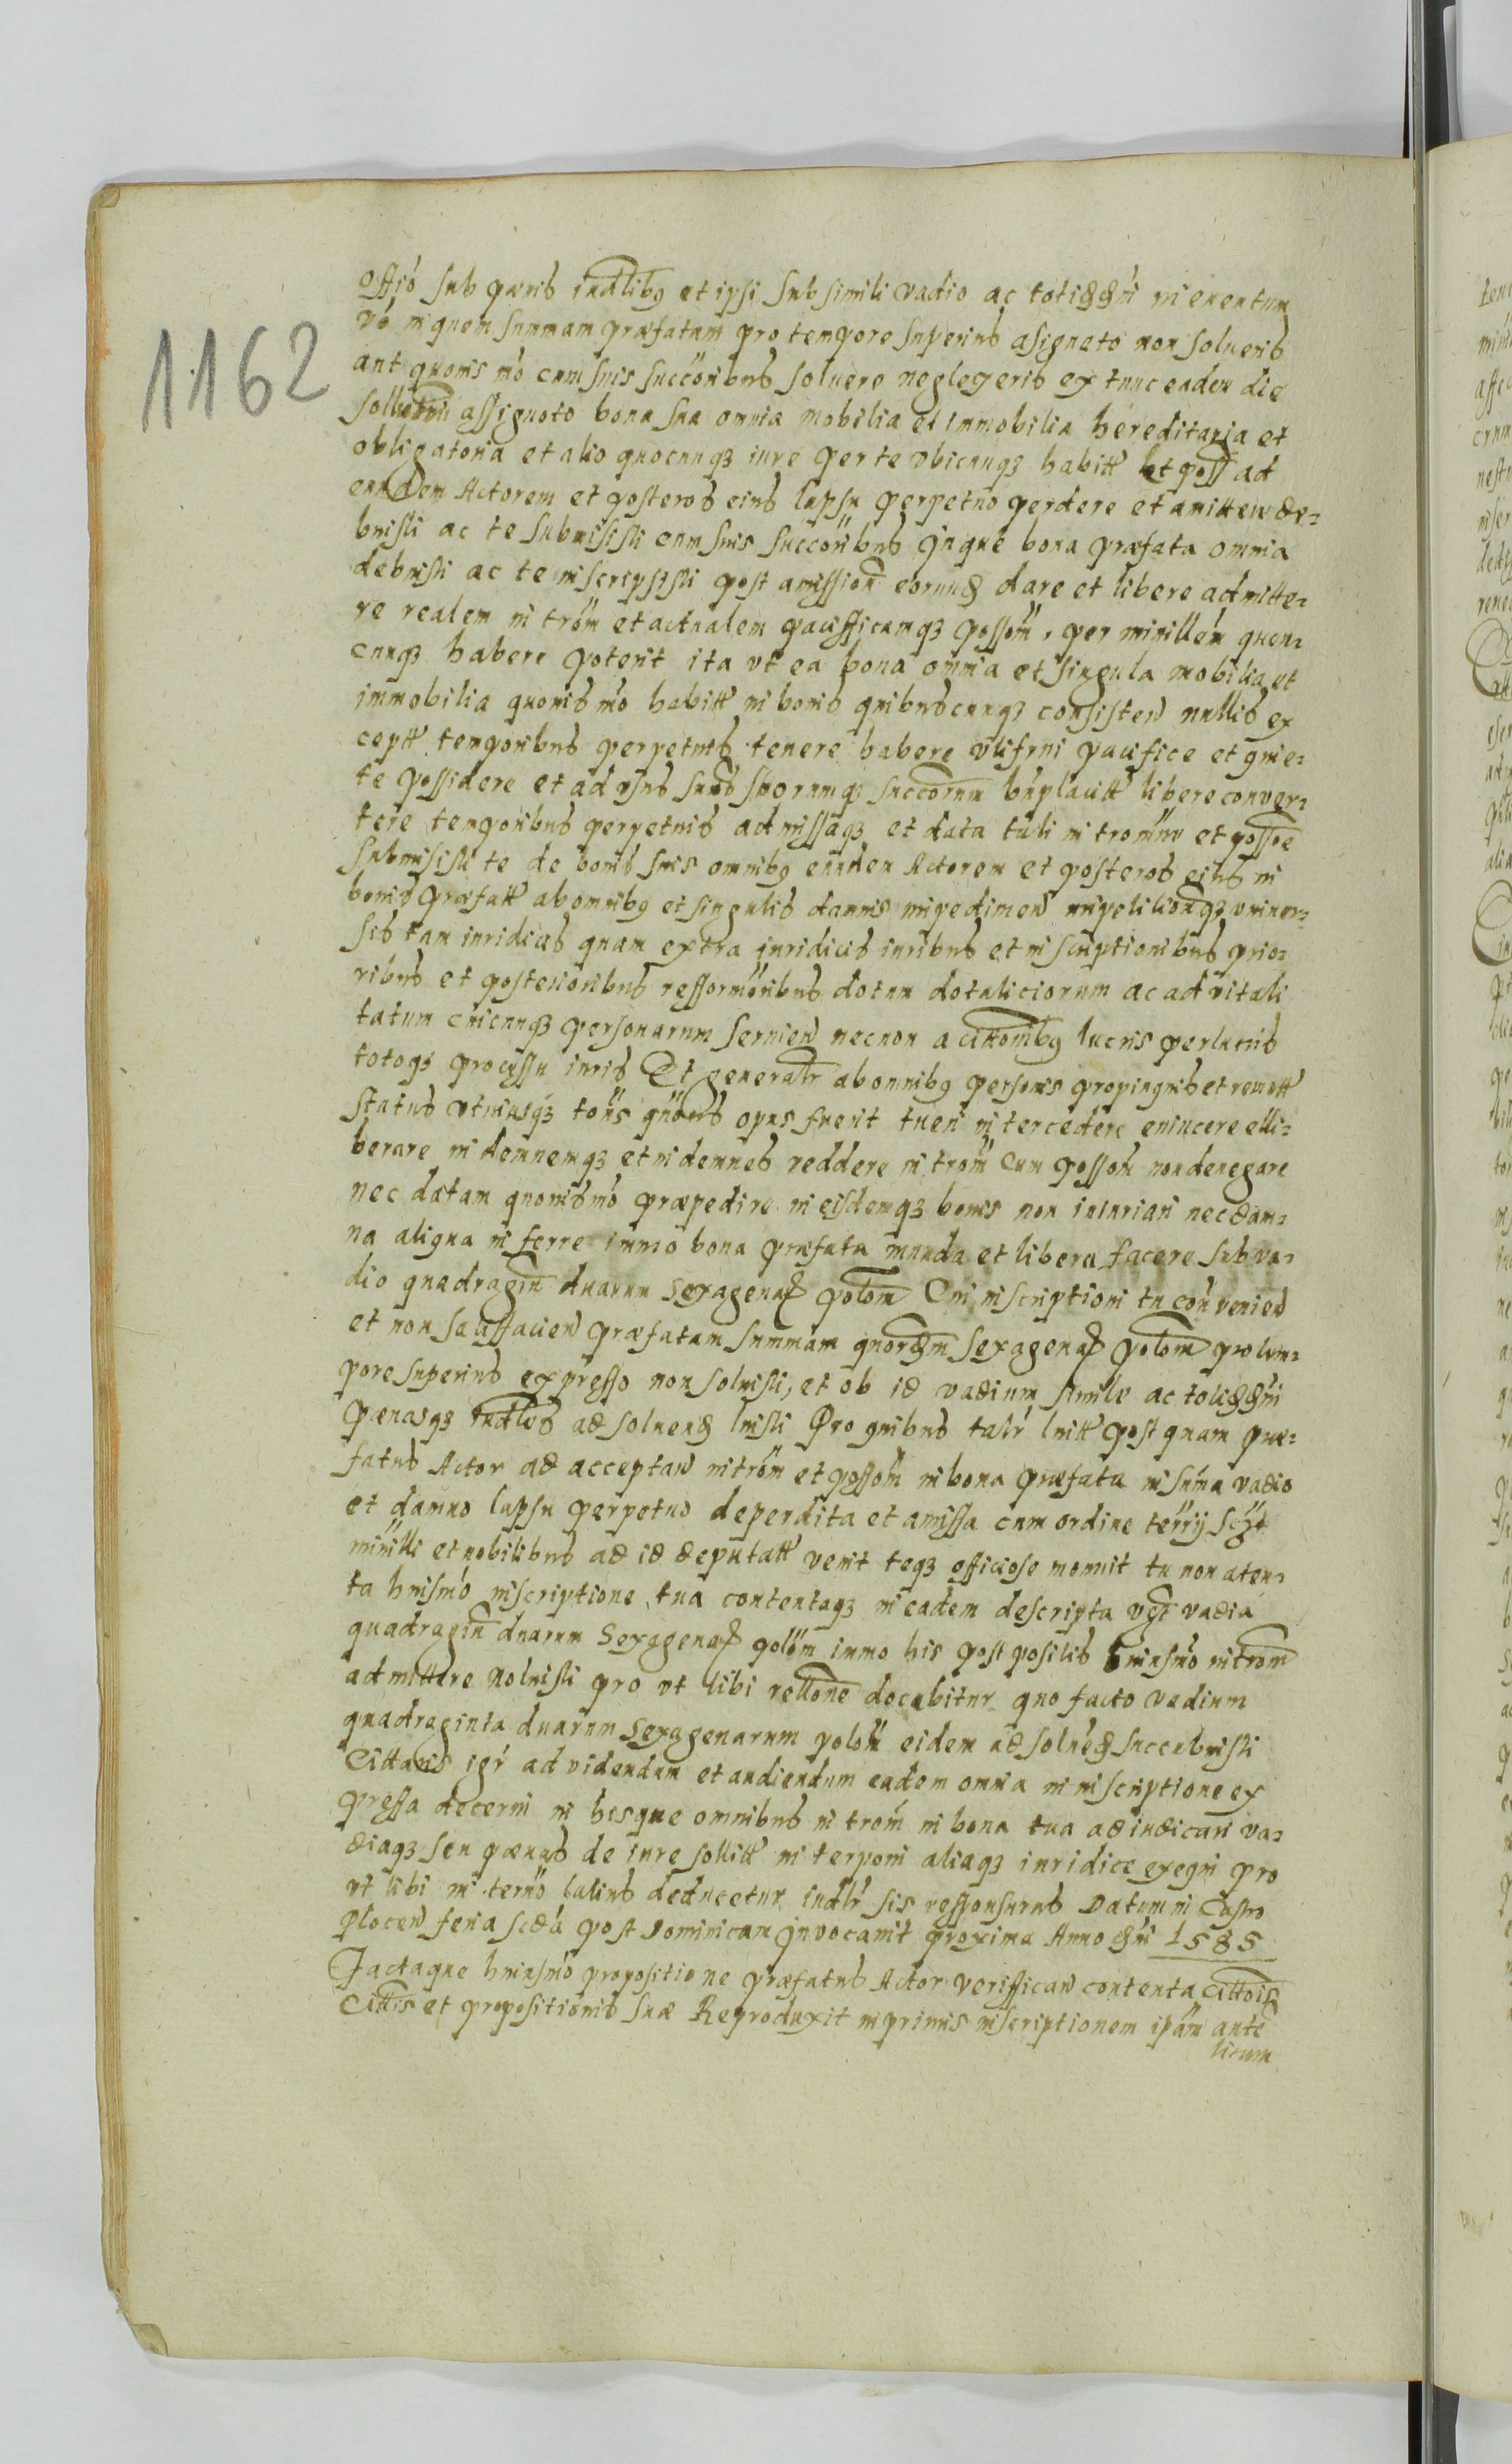 1162
offio sub pœnis iudlibꝫ et ipsi sub simili vadio ac toti in euentum
vo in quem summam præfatam pro tempore superius asignato non solueris
aut quouis mo cum suis succoribus soluereneglexeris ex tunc eadem die
solluconi assignato bona sua omnia mobilia et immobilia hereditaria et
obligatoria et alio quocunqꝫ iure per te vbicunqꝫ habitt et poss ad
eundem Actorem et posteros eius lapsu perpetuo perdere et amitten de=
buisti ac te submisisti cum suis succoribus Inque bona præfata omnia
debuisti ac te inscripsisti post amission eorund dare et libere admitte=
re realem introm et actualem pacifficamqꝫ possom, per minillem quen=
cunqꝫ habere poterit ita vt ea bona omnia et singula mobilia et
immobilia quouis mo habitt in bonis quibuscunqꝫ consisten nullis ex
ceptt temporibus perpetuis tenere habere vtifrui pacifice et quie=
te possidere et ad vsus suos suorumqꝫ succorum bnplacitt libere conver=
tere temporibus perpetuis admissaqꝫ et data tali intromne et possoe
submisisti te de bonis suis omnibꝫ eundem Actorem et posteros eius in
bonis præfatt ab omnibꝫ et singulis damnis impedimen impeticionqꝫ vniuer=
sis tam iuridicis quam extra iuridicis iuribus et inscriptionibus prio=
ribus et posterioribus refformoribus dotum dotaliciorum ac advitali
tatum cuicunqꝫ personarum seruien necnon a cittonibꝫ lucris perlucris
totoqꝫ processu iuris Et generalr ab omnibꝫ personis propinquis et remott
status vtriusqꝫ tons quons opus fuerit tueri intercedere euincere elli=
berare indemnemqꝫ et indemnes reddere introm cum possom non denegare
nec datam quouis mo præpedire in eisdemqꝫ bonis non iniuriari nec dam=
na aliqua inferre immo bona præfata munda et libera facere sub va=
dio quadragin duarum sexagenaꝝ polom Cui inscriptioni tu con venien
et non satisfacien præfatam summam sexagenaꝝ polom pro tem=
pore superius expresso non soluisti, et ob id vadium simile ac toti
pœnasqꝫ iudles ad soluend luisti Pro quibus talr luitt post quam præ=
fatus Actor ad acceptan introm et possom in bona præfata in suma vadio
et damno lapsu perpetuo deperdita et amissa cum ordine terrii sczt
minilli et nobilibus ad id deputatt venit teqꝫ officiose monuit tu non aten=
ta huismo inscriptione tua contentaqꝫ in eadem descripta vadia
quadragin duarum sexagenaꝝ polom immo his post positis huiusmo introm
admittere noluisti pro vt tibi rellone docebitur quo facto vadium
quadraginta duarum sexagenarum polom eidem ad soluend succubuisti
Cittaris igr ad videndum et audiendum eadem omnia in inscriptione ex
pressa decerni in hisque omnibus introm in bona tua adiudicari va=
diaqꝫ seu pœnas de iure sollitt interponi aliaqꝫ iuridice exequi pro
vt tibi in termo latius deducetur iudlr sis responsurus Datum in Castro
plocen feria scda post Dominicam Inuocauit proxima Anno dni 1585
Factaque huiusmo propositione præfatus Actor verifican contenta cittois
Cittis et propositionis suæ Reproduxit inprimis inscriptionem ipam ante
litum